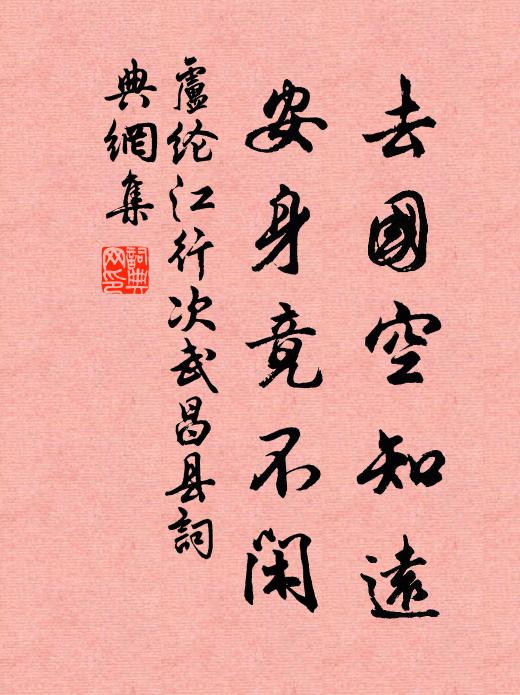 去國空知遠
安身竟不閑
盧纶江行次武昌县詞
典網集
詞典
网印